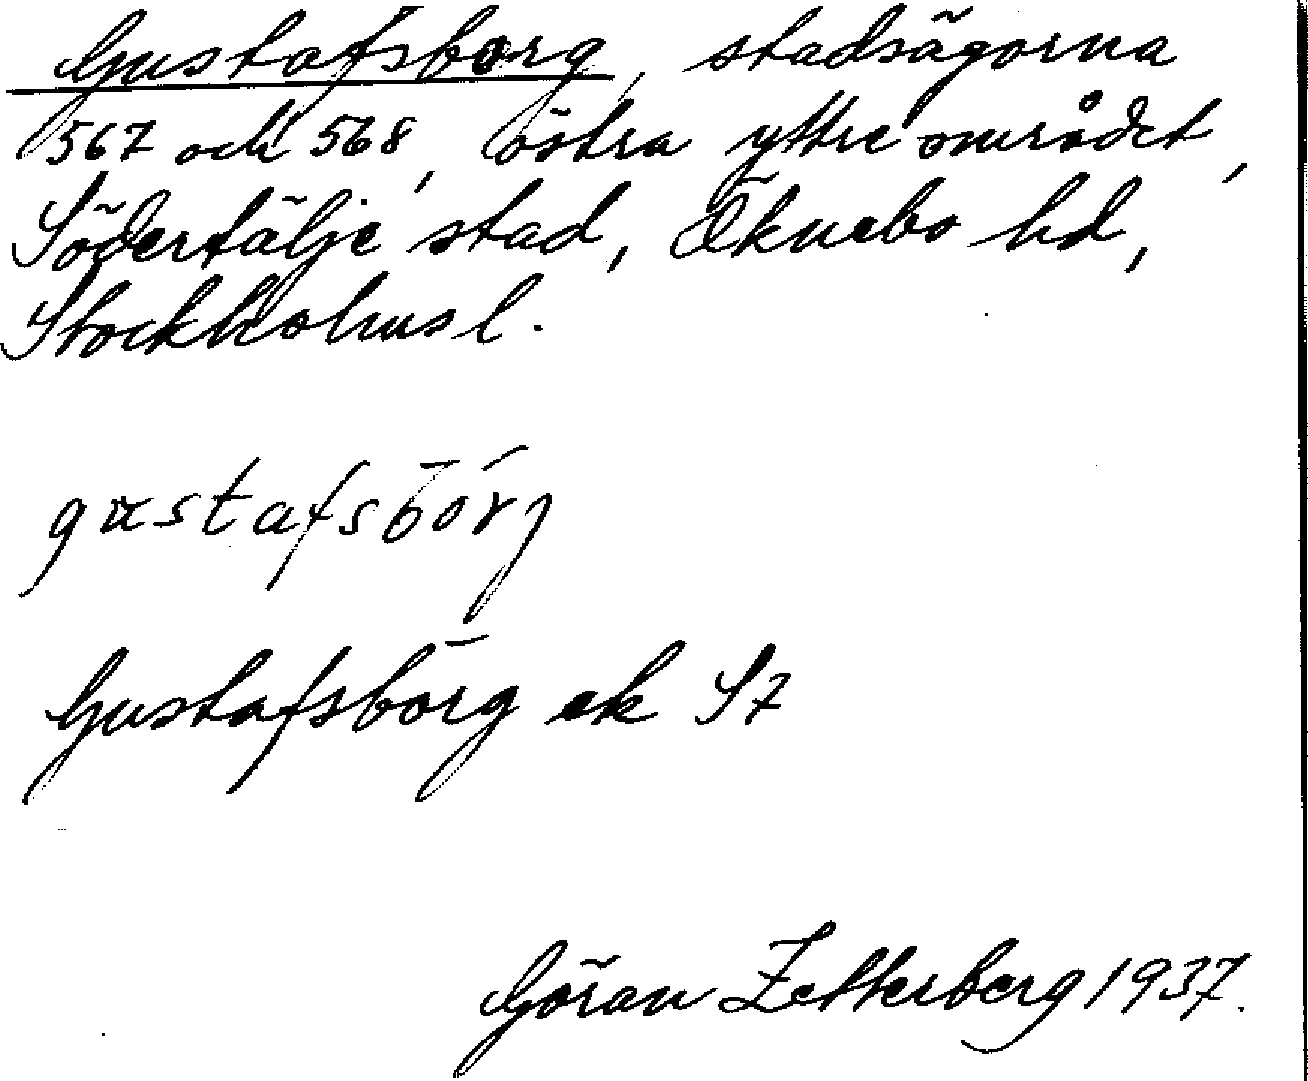 Gustafsborg, stadsägorna
567 och 568, östra yttre området,
Södertälje stad, Öknebo hd,
Stockholms l.
gustafsbórj
Gustafsborg ek S7
Göran Zetterberg 1937.